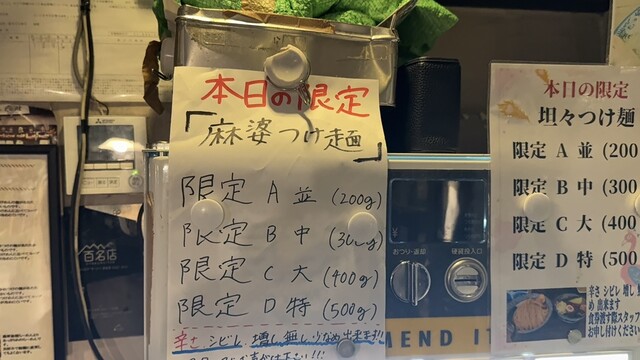 本日の限定
「麻婆つけ麺」
限定 A 並 (200g)
限定 B 中 (300g)
限定 C 大 (400g)
限定 D 特 (500g)
辛さ シビレ 増し 無し
出来ます!!
本日の限定
坦々つけ麺
限定 A 並 (200
限定 B 中 (300
限定 C 大 (400
限定 D 特 (500
辛さ シビレ 増し 無
め 出来ます
食券渡す際スタッフ
お申し付けください
百名店
おつり・返却
硬貨投入口